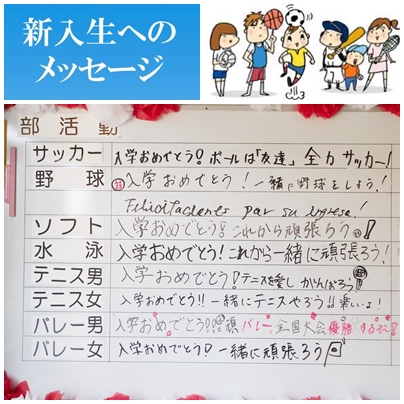 新入生への
メッセージ
部活動
サッカー 入学おめでとう!ボールは「友達」全力サッカー!
野球 入学おめでとう!一緒に野球をしよう!
Felicitaciones por su ingreso!
ソフト 入学おめでとう!!これから頑張ろう!
水泳 入学おめでとう!これから一緒に頑張ろう!
テニス男 入学おめでとう!テニスを愛しがんばろう!
テニス女 入学おめでとう!!一緒にテニスやろう!!楽しいよ!
バレー男 入学おめでとう!!!頑 バレー 全国大会優勝するぞ!
バレー女 入学おめでとう!一緒に頑張ろう